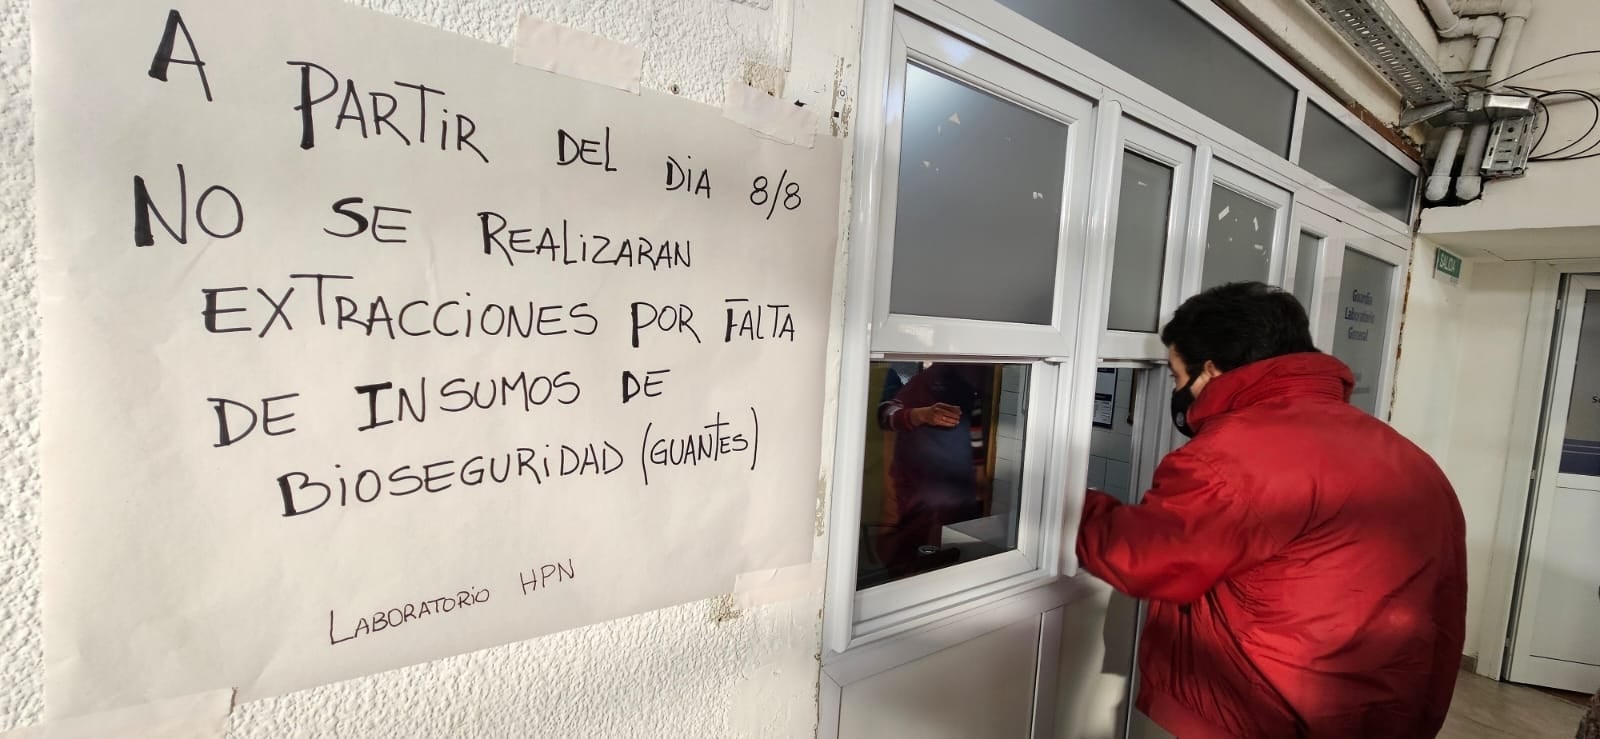 A PARTIR DEL DIA 8/8
NO SE REALIZARAN
EXTRACCIONES POR FALTA
DE INSUMOS DE
BIOSEGURIDAD (GUANTES)
LABORATORIO HPN
SALIDA
Guardia
Laboratorio
General